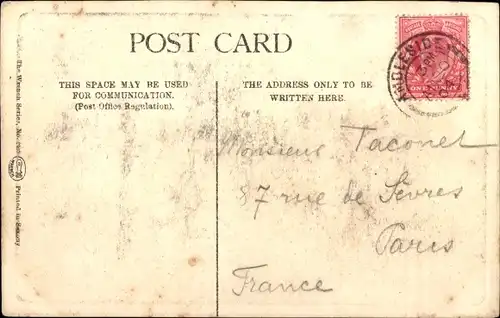 POST CARD
THIS SPACE MAY BE USED
FOR COMMUNICATION.
(Post Office Regulation).
THE ADDRESS ONLY TO BE
WRITTEN HERE.
AMBLESIDE
ONE PENNY
Monsieur Taconet
87 rue de Sèvres
Paris
France
The Wrench Series, No.
Printed in Saxony